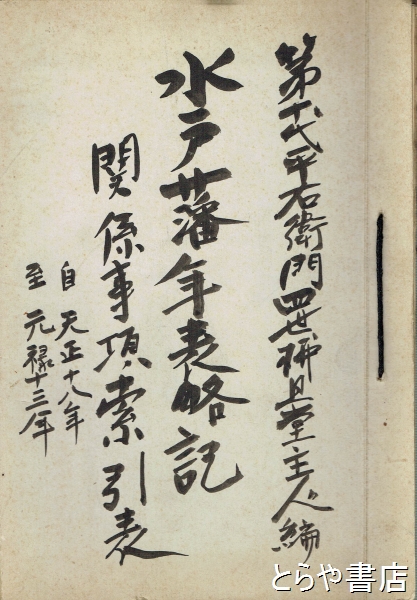 第十代平右衛門四世柿旦堂主人編
水戸藩年表略記
関係事項索引表
自 天正十八年
至 元禄十三年
とらや書店